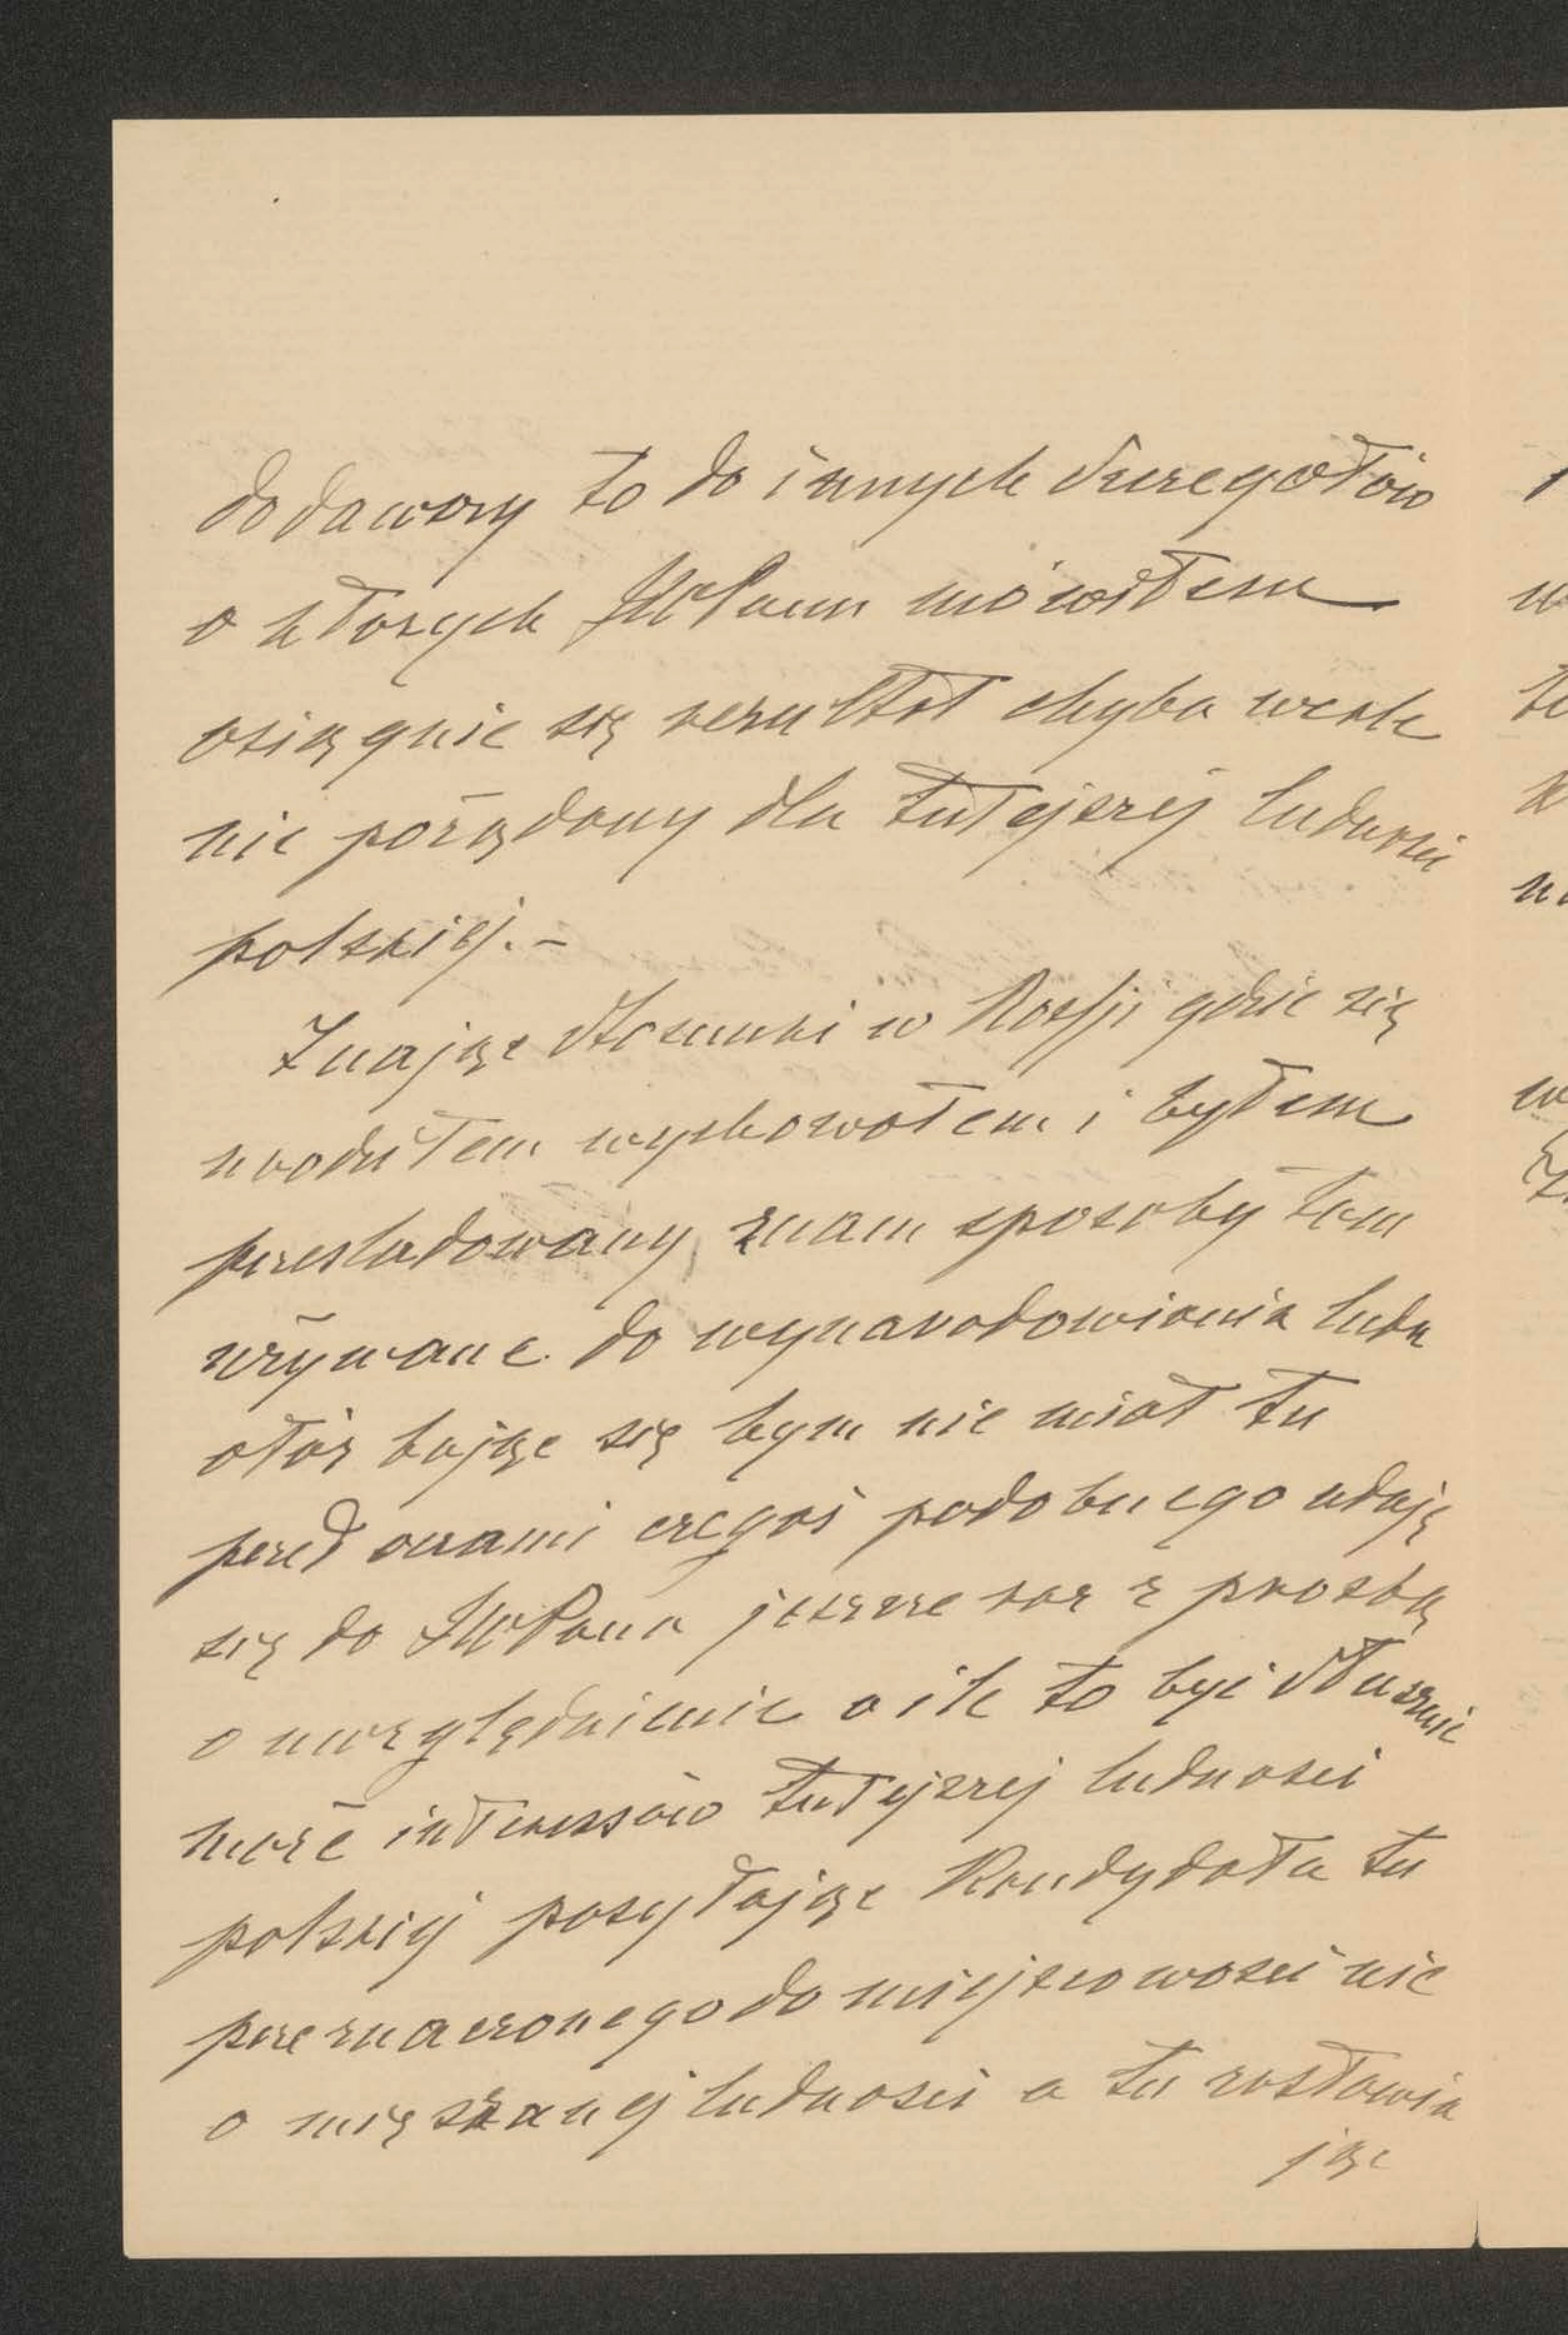 dodawszy to do innych szczegółów
o których JWPanu mówiłem
osiągnie się rezultat chyba wcale
nie pożądany dla tutejszej ludności
polskiej. –
Znając stosunki w Rossji gdzie się
urodziłem wychowałem i byłem
przesladowany, znam sposoby tam
używane do wynarodowiania ludu
otóż bojąc się bym nie miał tu
przed oczami czegoś podobnego udaję
się do JWPana jeszcze raz z prozbą
o uwzględnienie o ile to być słusznie
może interessów tutejszej ludności
polskiej posyłając Kandydata tu
przeznaczonego do miejscowości nie
o mięszanej ludności a tu zostawia
jąc